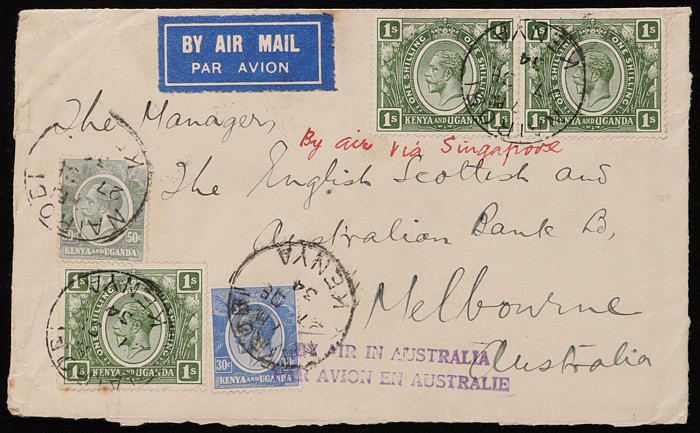 BY AIR MAIL
PAR AVION
1s 1s 1s 1s
ONE SHILLING ONE SHILLING
1s 1s 1s 1s
KENYA AND UGANDA KENYA AND UGANDA
The Manager,
By air via Singapore
The English Scottish and
Australian Bank
Melbourne
Australia
NAIROBI
50c
KENYA AND UGANDA
1s 1s
ONE SHILLING
1s 1s
KENYA AND UGANDA
KENYA
34
30c
KENYA AND UGANDA
KENYA
34
BY AIR IN AUSTRALIA
AVION EN AUSTRALIE